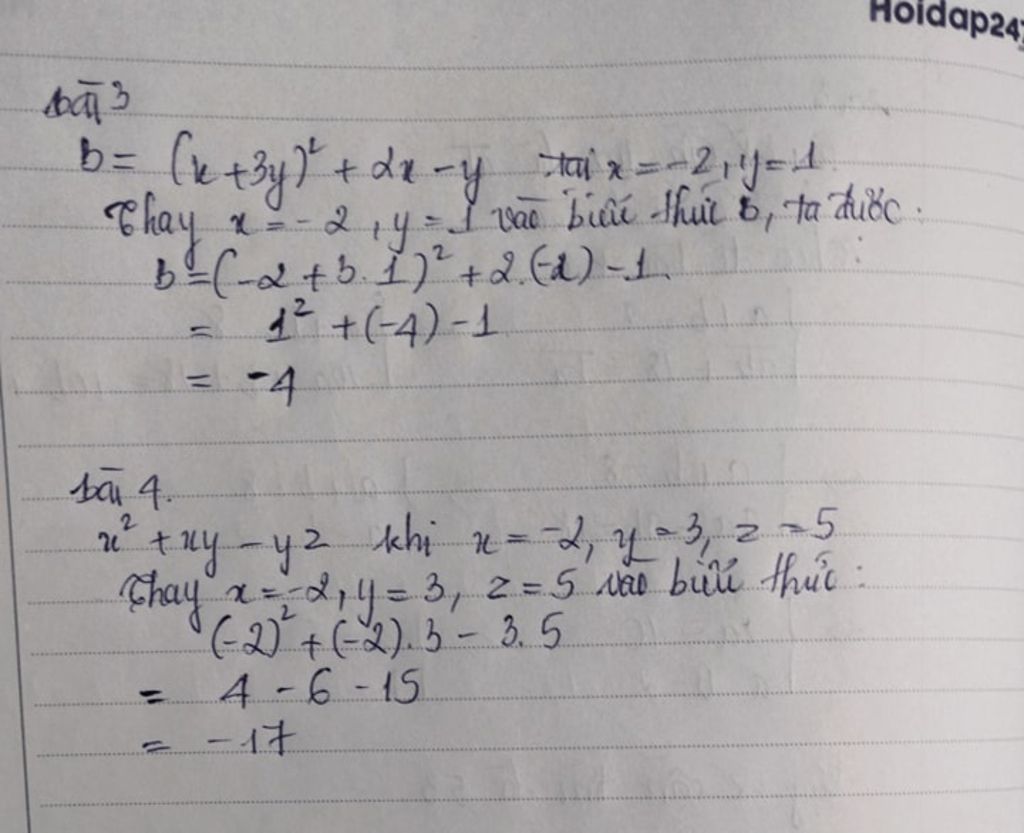 Hoidap247
bài 3
b = (x + 3y)² + 2x - y tại x = -2, y = 1
Thay x = -2, y = 1 vào biểu thức b, ta được :
b = (-2 + 3.1)² + 2.(-2) - 1.
= 1² + (-4) - 1
= -4
bài 4.
x² + xy - yz khi x = -2, y = 3, z = 5
Thay x = -2, y = 3, z = 5 vào biểu thức :
(-2)² + (-2).3 - 3.5
= 4 - 6 - 15
= -17